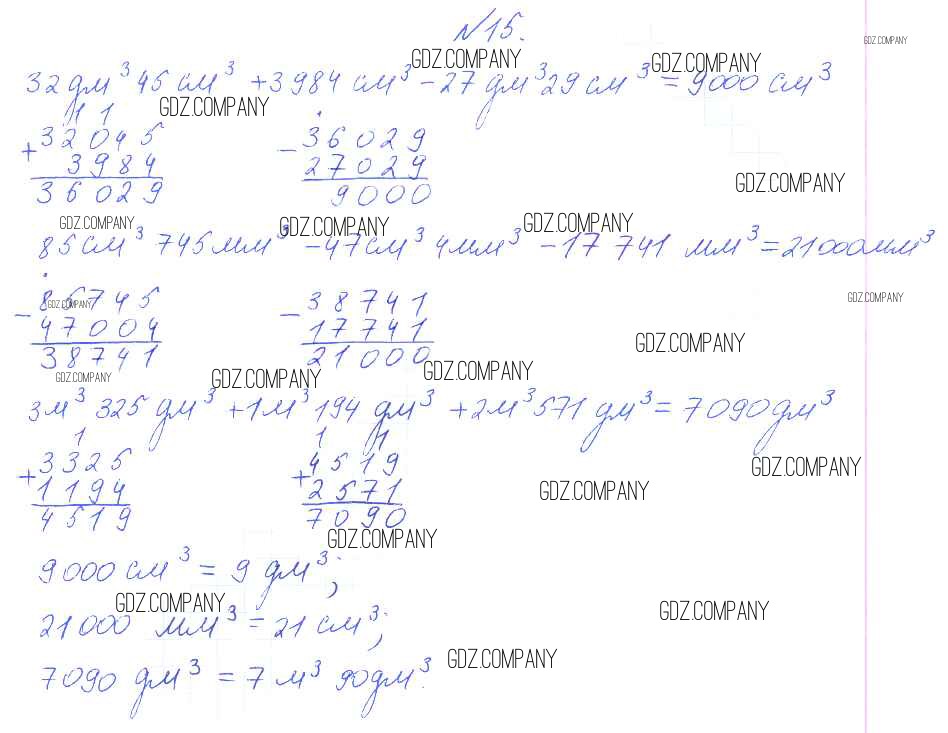 №15.
GDZ.COMPANY GDZ.COMPANY GDZ.COMPANY
32 дм³ 45 см³ + 3984 см³ - 27 дм³ 29 см³ = 9000 см³
GDZ.COMPANY
1 1
+ 32045 - 36029
3984 27029
36029 9000
GDZ.COMPANY
GDZ.COMPANY GDZ.COMPANY GDZ.COMPANY
85 см³ 745 мм³ - 47 см³ 4 мм³ - 17 741 мм³ = 21000 мм³
- 85745 - 38741
GDZ.COMPANY GDZ.COMPANY
47004 17741
38741 21000
GDZ.COMPANY
GDZ.COMPANY GDZ.COMPANY GDZ.COMPANY
3 м³ 325 дм³ + 1 м³ 194 дм³ + 2 м³ 571 дм³ = 7090 дм³
1 1 1
+ 3325 + 4519
1194 2571
4519 7090
GDZ.COMPANY
GDZ.COMPANY
GDZ.COMPANY
9000 см³ = 9 дм³;
GDZ.COMPANY GDZ.COMPANY
21000 мм³ = 21 см³;
GDZ.COMPANY
7090 дм³ = 7 м³ 90 дм³.